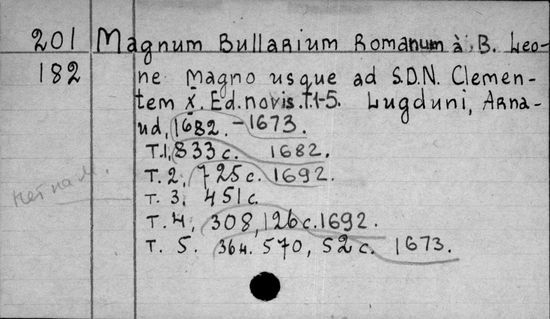 201 Magnum Bullarium Romanum à B. Leo-
182 ne Magno usque ad S.D.N. Clemen-
tem X. Ed. novis. T.1-5. Lugduni, Arna-
ud, 1682.-1673.
T.1, 833 c. 1682.
T. 2, 725 c. 1692.
T. 3, 451 c.
T. 4, 308, 126 c. 1692.
T. 5. 36н. 570, 52 c. 1673.